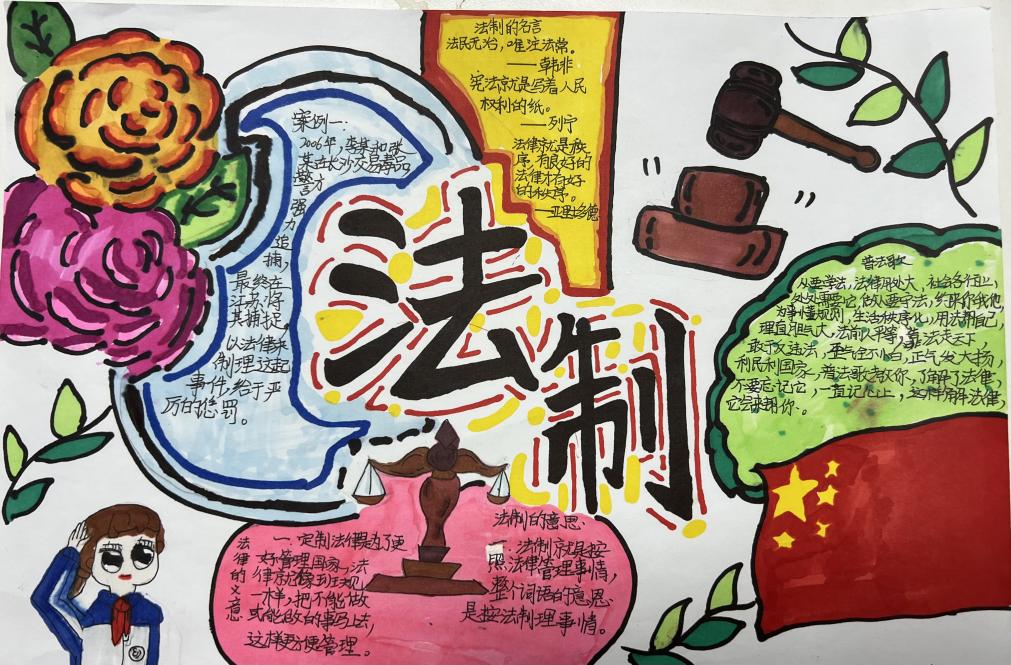 法制的名言
法民无治，唯注法常。
——韩非
宪法就是写着人民
权利的纸。
——列宁
法律就是秩
序，有良好的
法律才有好
的秩序。
——亚里士多德
案例一：
2006年，李某和张
某在长沙交易毒品
警方
强
力
追
捕，
最终在
江苏将
其捕捉。
以法律来
制理这起
事件，给于严
厉的惩罚。
法制
普法歌
从要学法，法律用处大，社会各行业，
处处需要它，做人要守法，
为事懂规则，生活秩序化，用法帮自己，
理直但气大，法前人平等，靠法走天下
敢于又违法，正气发大扬，
利民利国家，普法歌教你，了解了法律，
不要忘记它，一直记心上，这样用法律，
它会来帮你。
法律的意
一：定制法律是为了更
好管理国家，法
律就像班规
一样，把不能做
或能做的事写上去，
这样更方便管理。
法制的意思
一：法制就是按
照法律管理事情，
整个词语的意思
是按法制理事情。